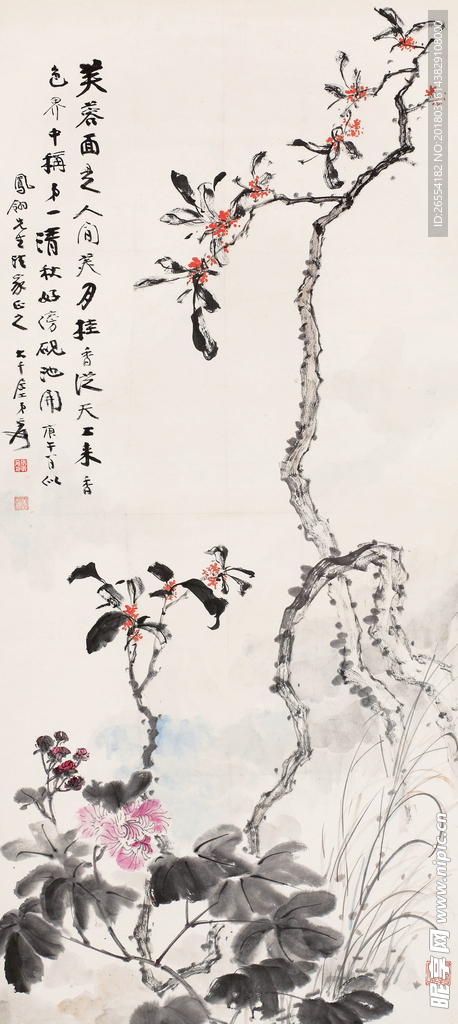 芙蓉面是人间美月桂香从天上来香
色界中称第一清秋好傍砚池开庚午八月似
凤翎先生法家正之 大千居士爰
ID:26554182 NO:20180316143829108000
昵享网 www.nipic.cn